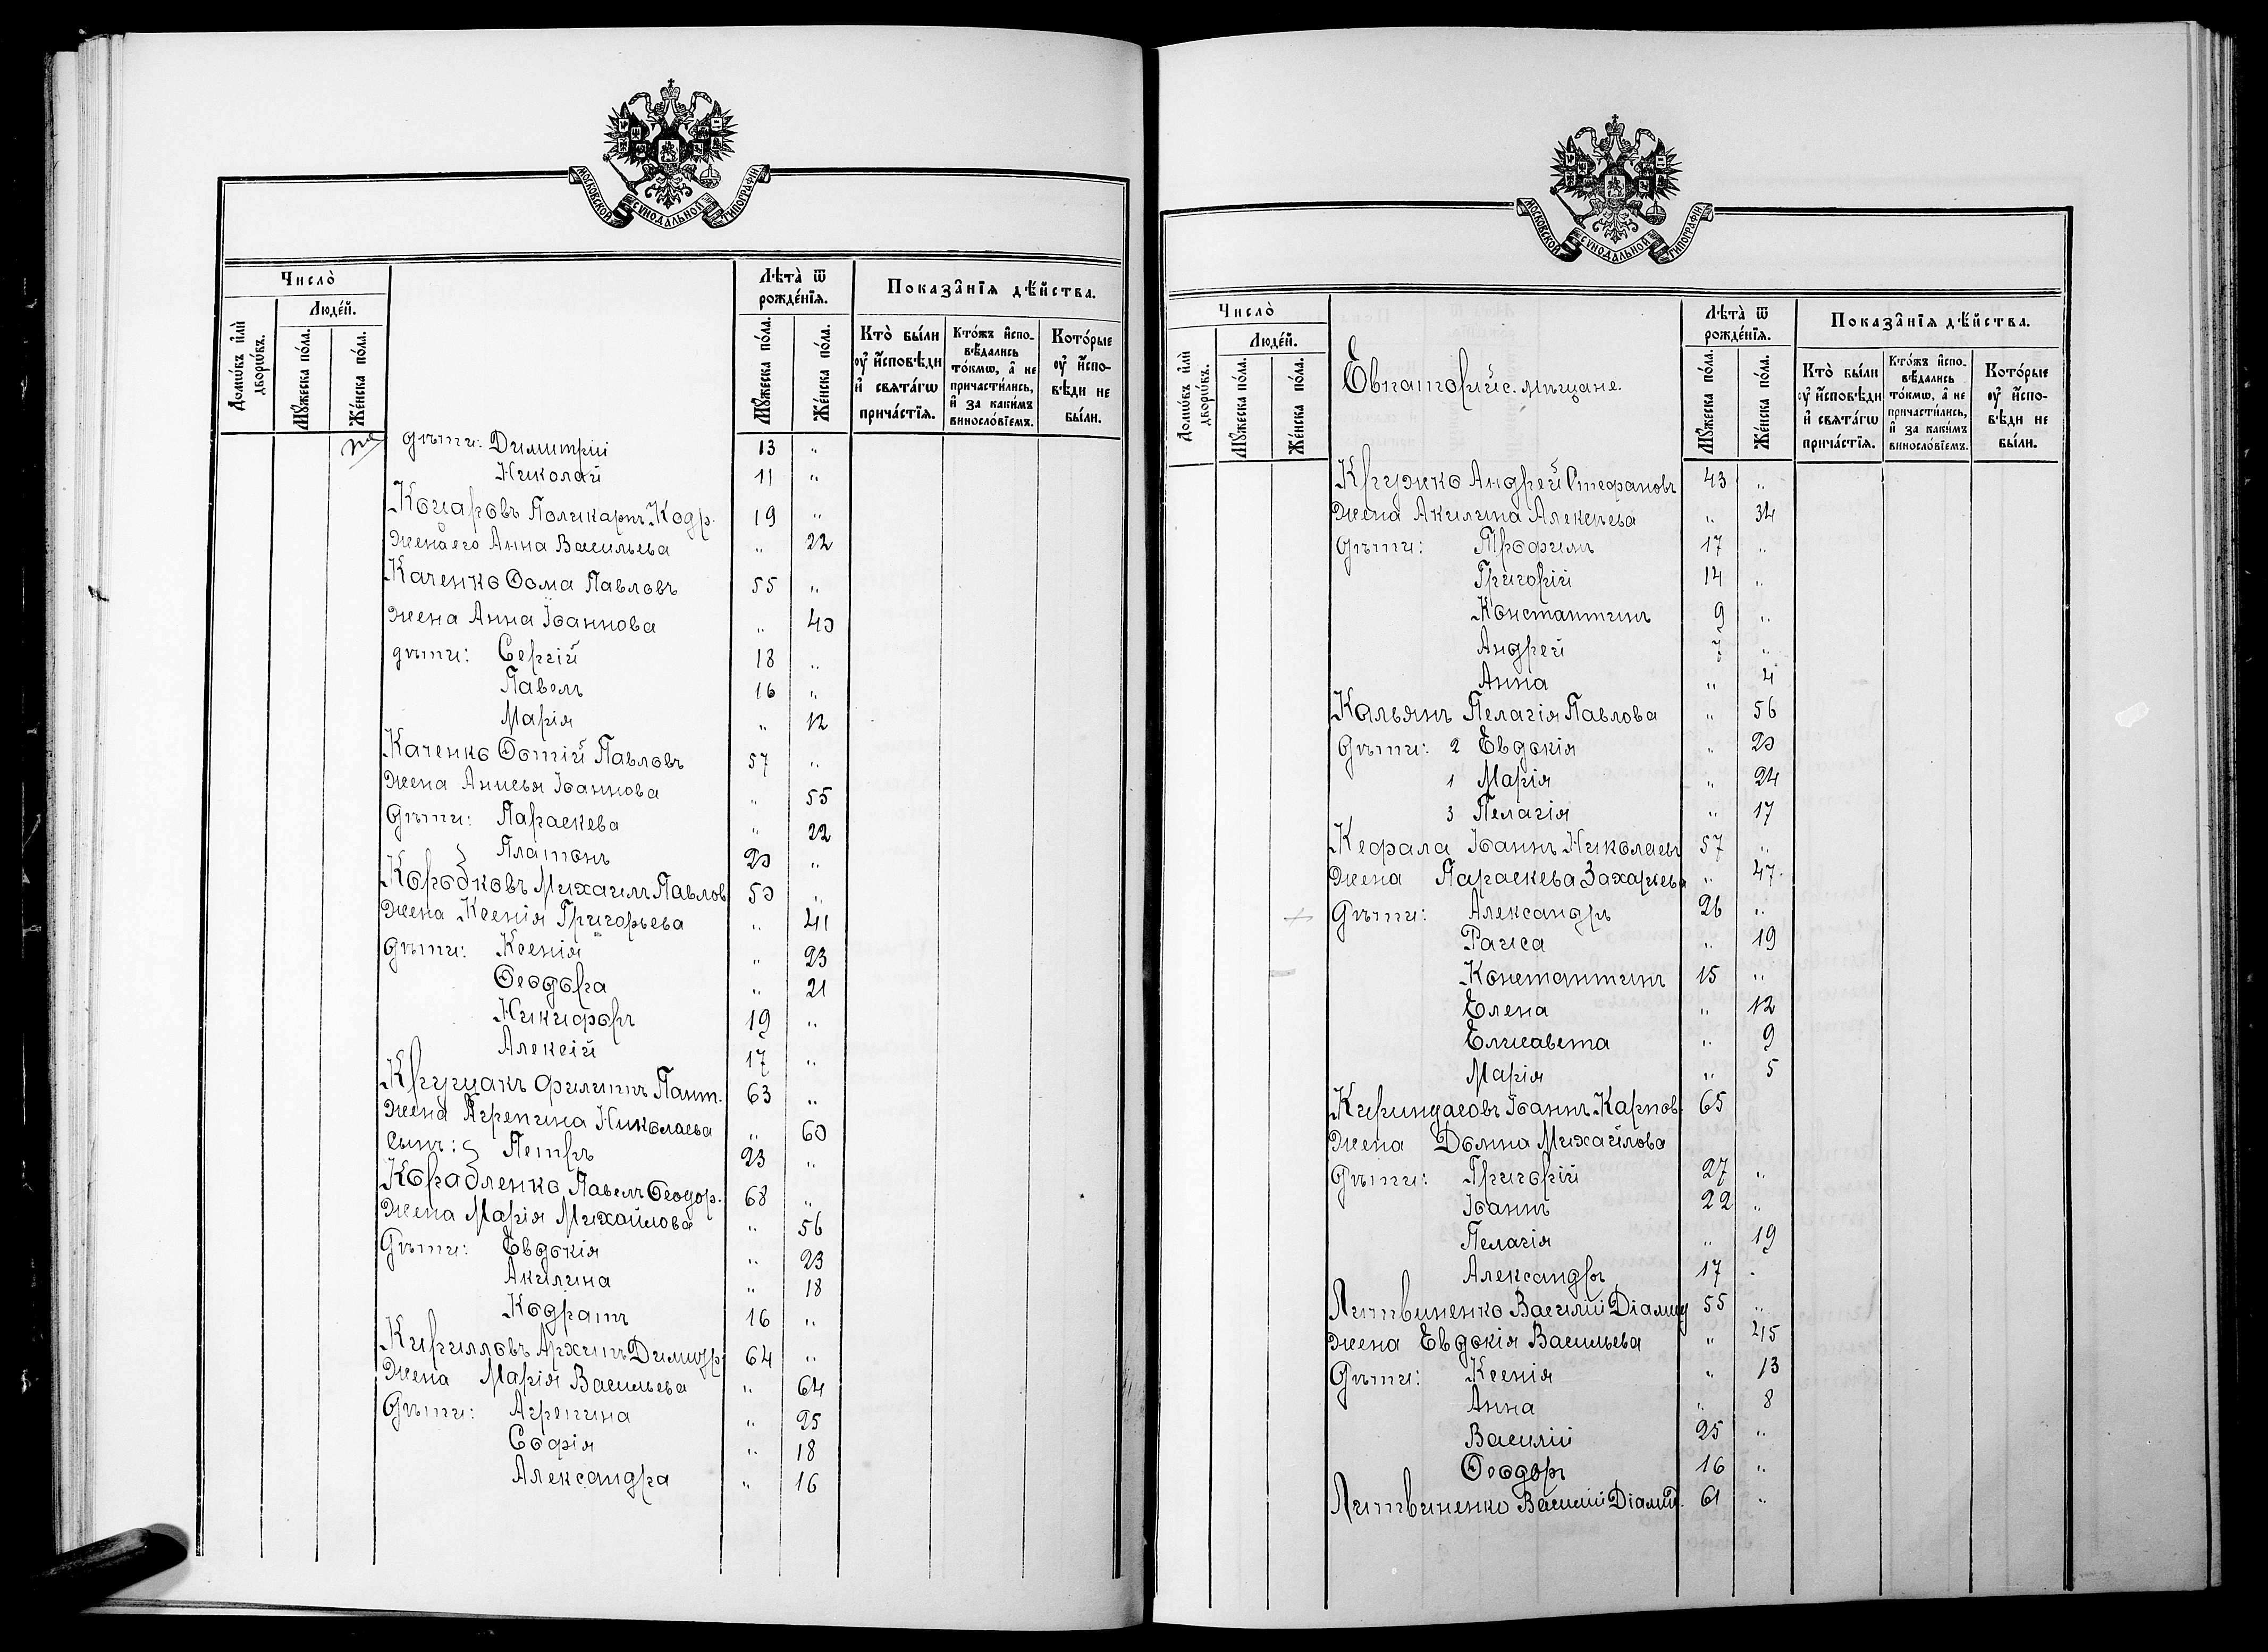 МОСКОВСКОЙ СѴНОДАЛЬНОЙ ТИПОГРАФІИ
Число̀
Людє́й.
Домѡ́въ и҆лѝ дворѡ́въ.
Мꙋ́жєска по́ла.
Жє́нска по́ла.
Лѣта̀ ѿ рождє́нїѧ.
Мꙋ́жєска по́ла.
Жє́нска по́ла.
Показа̑нїѧ дѣ́йства.
Кто̀ бы́ли оу҆ и҆́сповѣди и҆ свѧта́гѡ прича́стїѧ.
Кто́жъ и҆спо-
вѣ́дались
то́кмѡ, а҆ не
причасти́лись,
и҆ за каки́мъ
винослѡ́вїемъ.
Кото́рые
оу҆ и҆спо-
вѣди не
бы́ли.
дѣти: Димитрій 13 „
Николай 11 „
Кочаровъ Поликарпъ Кодр. 19 „
Жена его Анна Васильева „ 22
Каченко Ѳома Павловъ 55 „
жена Анна Іоаннова „ 40
дѣти: Сергій 18 „
Павелъ 16 „
Марія „ 12
Каченко Ѳотій Павловъ 57 „
Жена Анисья Іоаннова „ 55
Дѣти: Параскева „ 22
Платонъ 20 „
Коробковъ Михаилъ Павлов 50 „
Жена Ксенія Григорьева „ 41
Дѣти: Ксенія „ 23
Ѳеодора „ 21
Никифоръ 19 „
Алексій 17 „
Крущакъ Филиппъ Пант. 63 „
Жена Агрепина Николаева „ 60
Сынъ: Петръ 23 „
Корабленко Павелъ Ѳеодор. 68 „
Жена Марія Михайлова „ 56
Дѣти: Евдокія „ 23
Акилина „ 18
Кодратъ 16 „
Кирилловъ Архипъ Димитр 64 „
Жена Марія Васильева „ 64
Дѣти: Агрепина „ 25
Софія „ 18
Александра „ 16
МОСКОВСКОЙ СѴНОДАЛЬНОЙ ТИПОГРАФІИ
Число̀
Людє́й.
Домѡ́въ и҆лѝ дворѡ́въ.
Мꙋ́жєска по́ла.
Жє́нска по́ла.
Евпаторійс. мѣщане.
Лѣта̀ ѿ рождє́нїѧ.
Мꙋ́жєска по́ла.
Жє́нска по́ла.
Показа̑нїѧ дѣ́йства.
Кто̀ бы́ли оу҆ и҆́сповѣди и҆ свѧта́гѡ прича́стїѧ.
Кто́жъ и҆спо-
вѣ́дались
то́кмѡ, а҆ не
причасти́лись,
и҆ за каки́мъ
винослѡ́вїемъ.
Кото́рые
оу҆ и҆спо-
вѣди не
бы́ли.
Кружко Андрей Стефановъ 43 „
Жена Акилина Алексѣева „ 34
Дѣти: Трофимъ 17 „
Григорій 14 „
Константинъ 9 „
Андрей 7 „
Анна „ 4
Кальянъ Пелагія Павлова „ 56
Дѣти: 2 Евдокія „ 20
1 Марія „ 24
3 Пелагія „ 17
Кефала Іоаннъ Николаевъ 57 „
Жена Параскева Захарьева „ 47.
Дѣти: Александръ 26 „
Раиса „ 19
Константинъ 15 „
Елена „ 12
Елисавета „ 9
Марія „ 5
Кириндасовъ Іоаннъ Карпов. 65
Жена Домна Михайлова
Дѣти: Григорій 27 „
Іоаннъ 22 „
Пелагія „ 19
Александръ 17 „
Литвиненко Василій Діамид 55 „
Жена Евдокія Васильева „ 45
Дѣти: Ксенія „ 13
Анна „ 8
Василій 25 „
Ѳеодоръ 16 „
Литвиненко Василій Діамид. 61 „